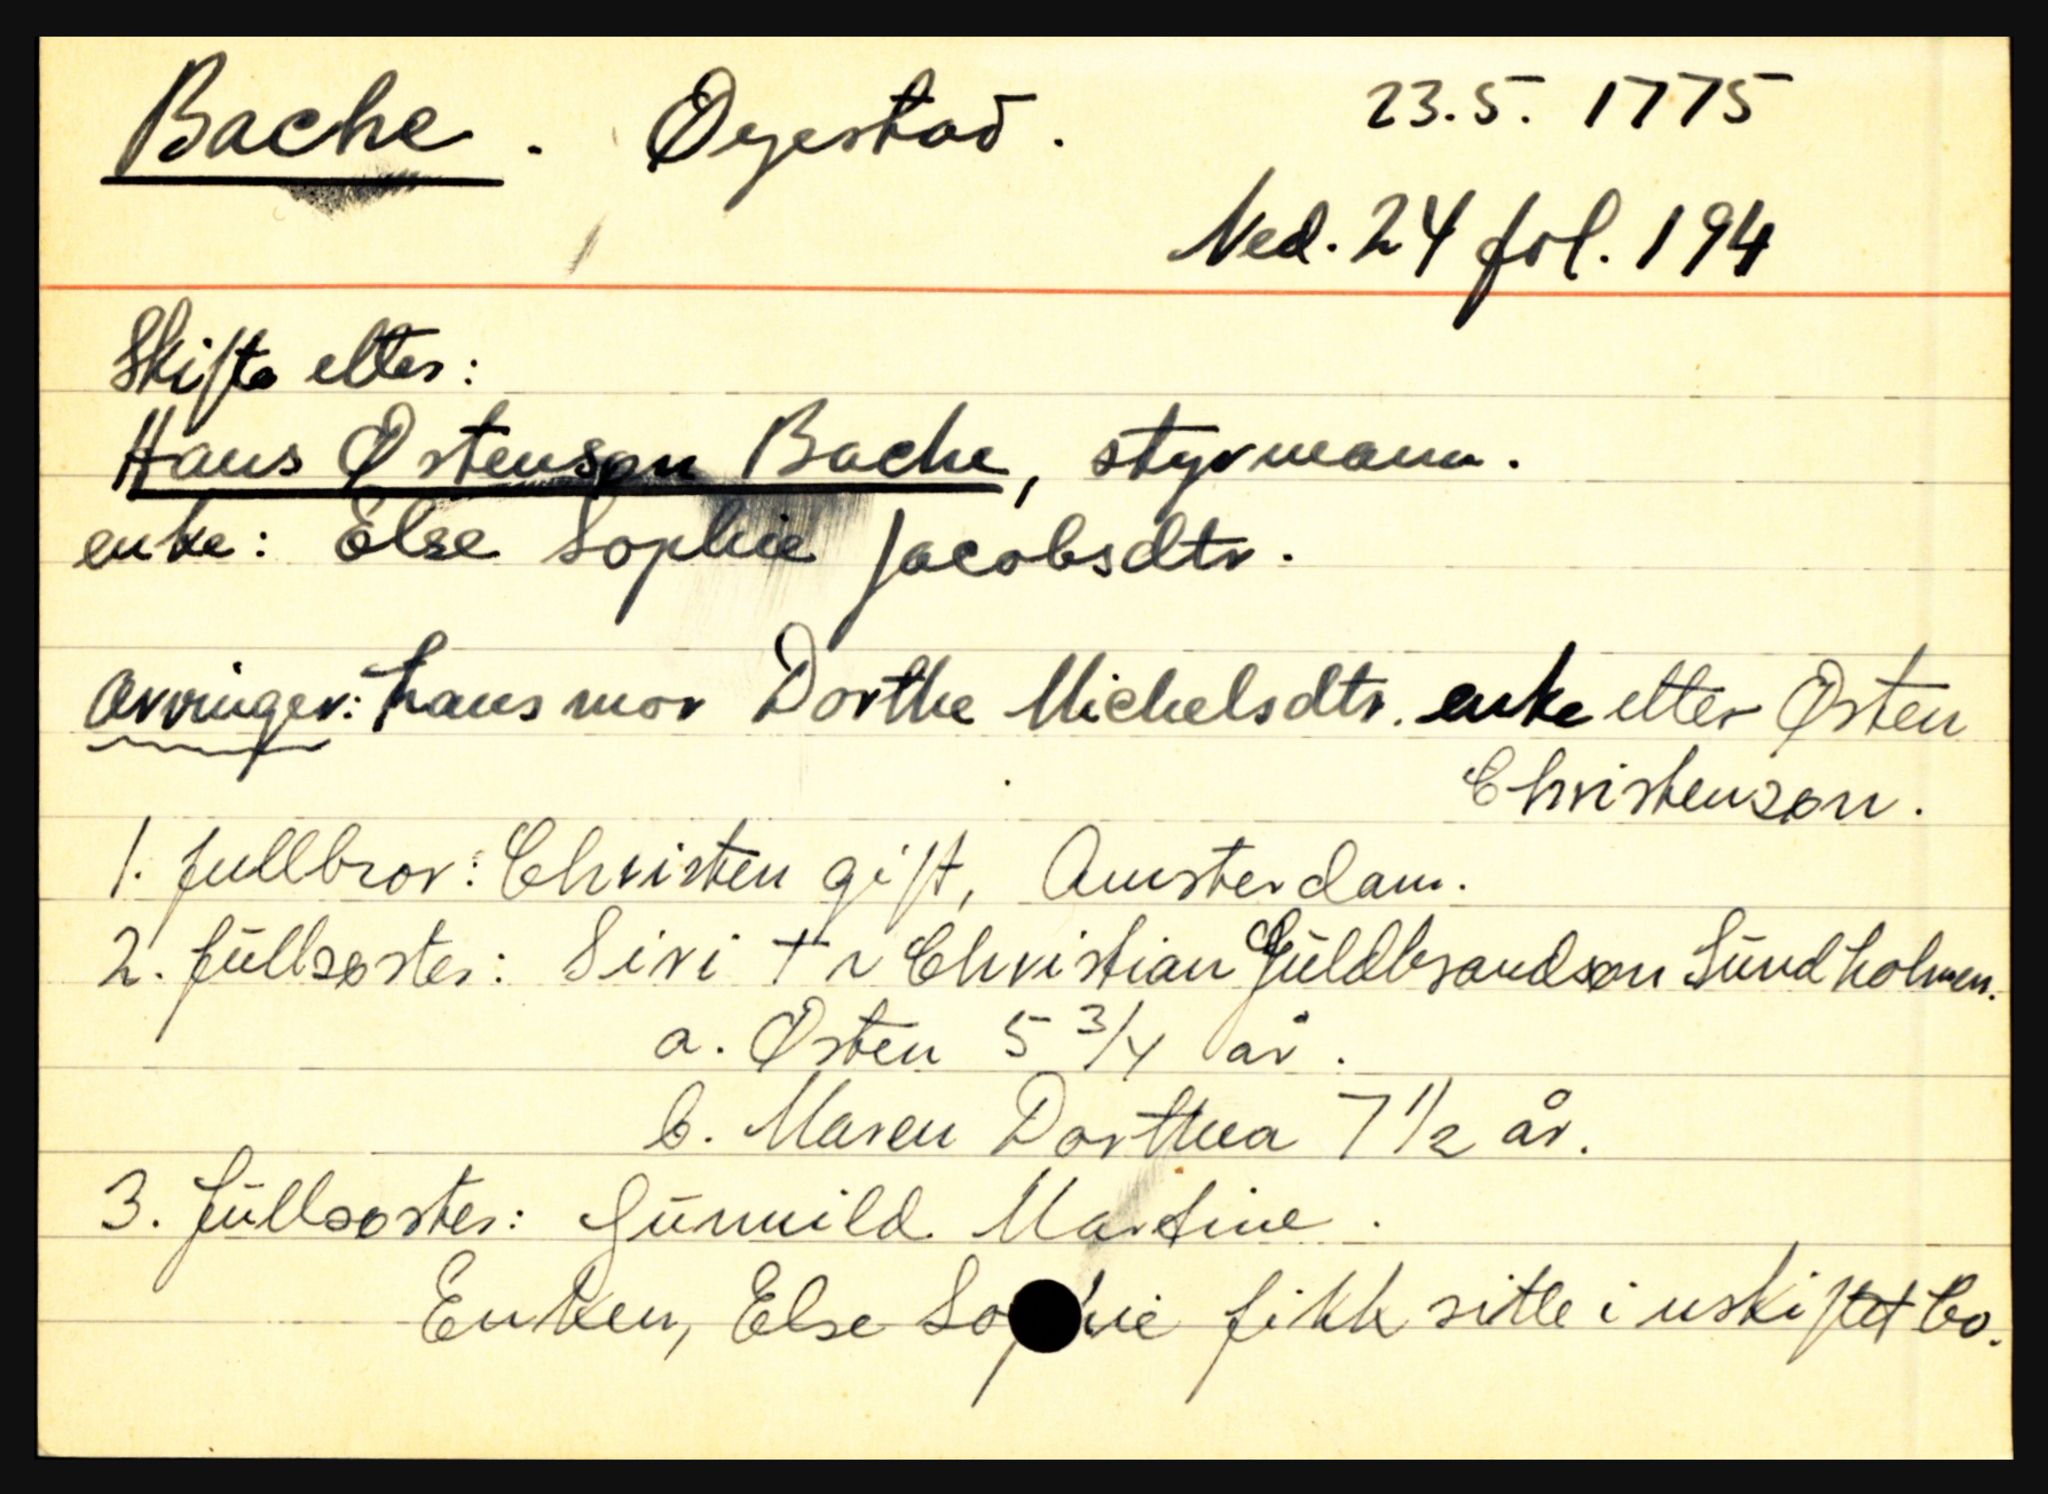 Bache. Øyestad. 23.5. 1775
Ned. 24 fol. 194
Skifte etter:
Hans Østenson Bache, styrmann.
enke: Else Sophie Jacobsdtr.
Arvinger: hans mor Dorthe Michelsdtr. enke etter Østen
Christenson.
1. fullbror: Christen gift, Amsterdam.
2. füllsøster: Siri † Christian Güldbrandson Sündholmen.
a. Østen 5 3/4 år.
b. Maren Dorthea 7 1/2 år.
3. füllsøster: Günnild Martine.
Enken, Else Sophie fikk sitte i uskiftet bo.